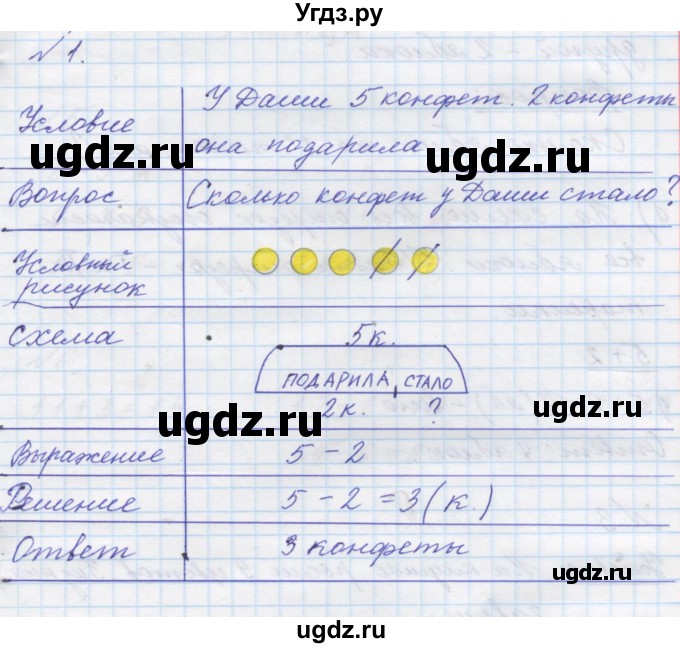 Угдз.ру
№1.
Условие У Даши 5 конфет. 2 конфеты
она подарила
ugdz.ru ugdz.ru
Вопрос Сколько конфет у Даши стало?
Условный
рисунок
Схема 5 к.
ПОДАРИЛА СТАЛО
2 к. ?
ugdz.ru ugdz.ru
Выражение 5 - 2
Решение 5 - 2 = 3 (к.)
Ответ 3 конфеты
ugdz.ru
ugdz.ru